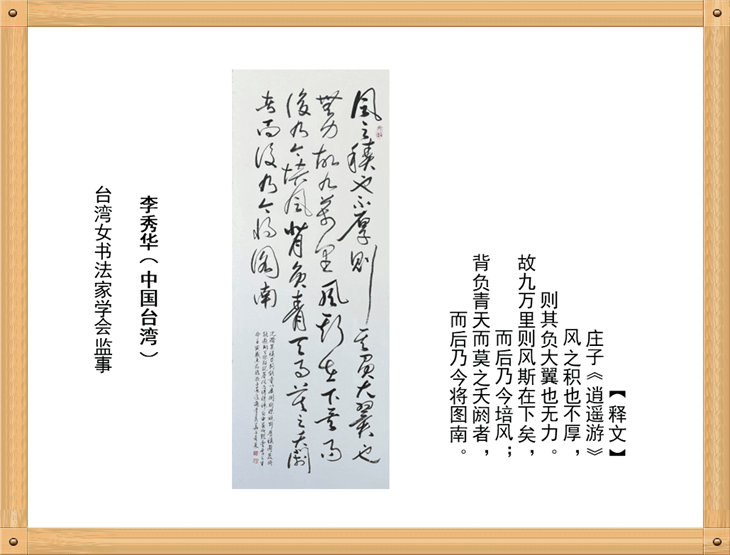 【释文】
庄子《逍遥游》
风之积也不厚，
则其负大翼也无力。
故九万里则风斯在下矣，
而后乃今培风；
背负青天而莫之夭阏者，
而后乃今将图南。
風之積也不厚則其負大翼也
無力故九萬里風斯在下矣而
後乃今培風背負青天而莫之夭閼
者而後乃今將圖南
李秀华（中国台湾）
台湾女书法家学会监事